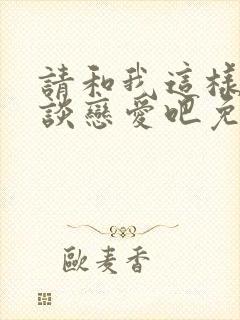 請和我這樣
談戀愛吧免
歐麦香